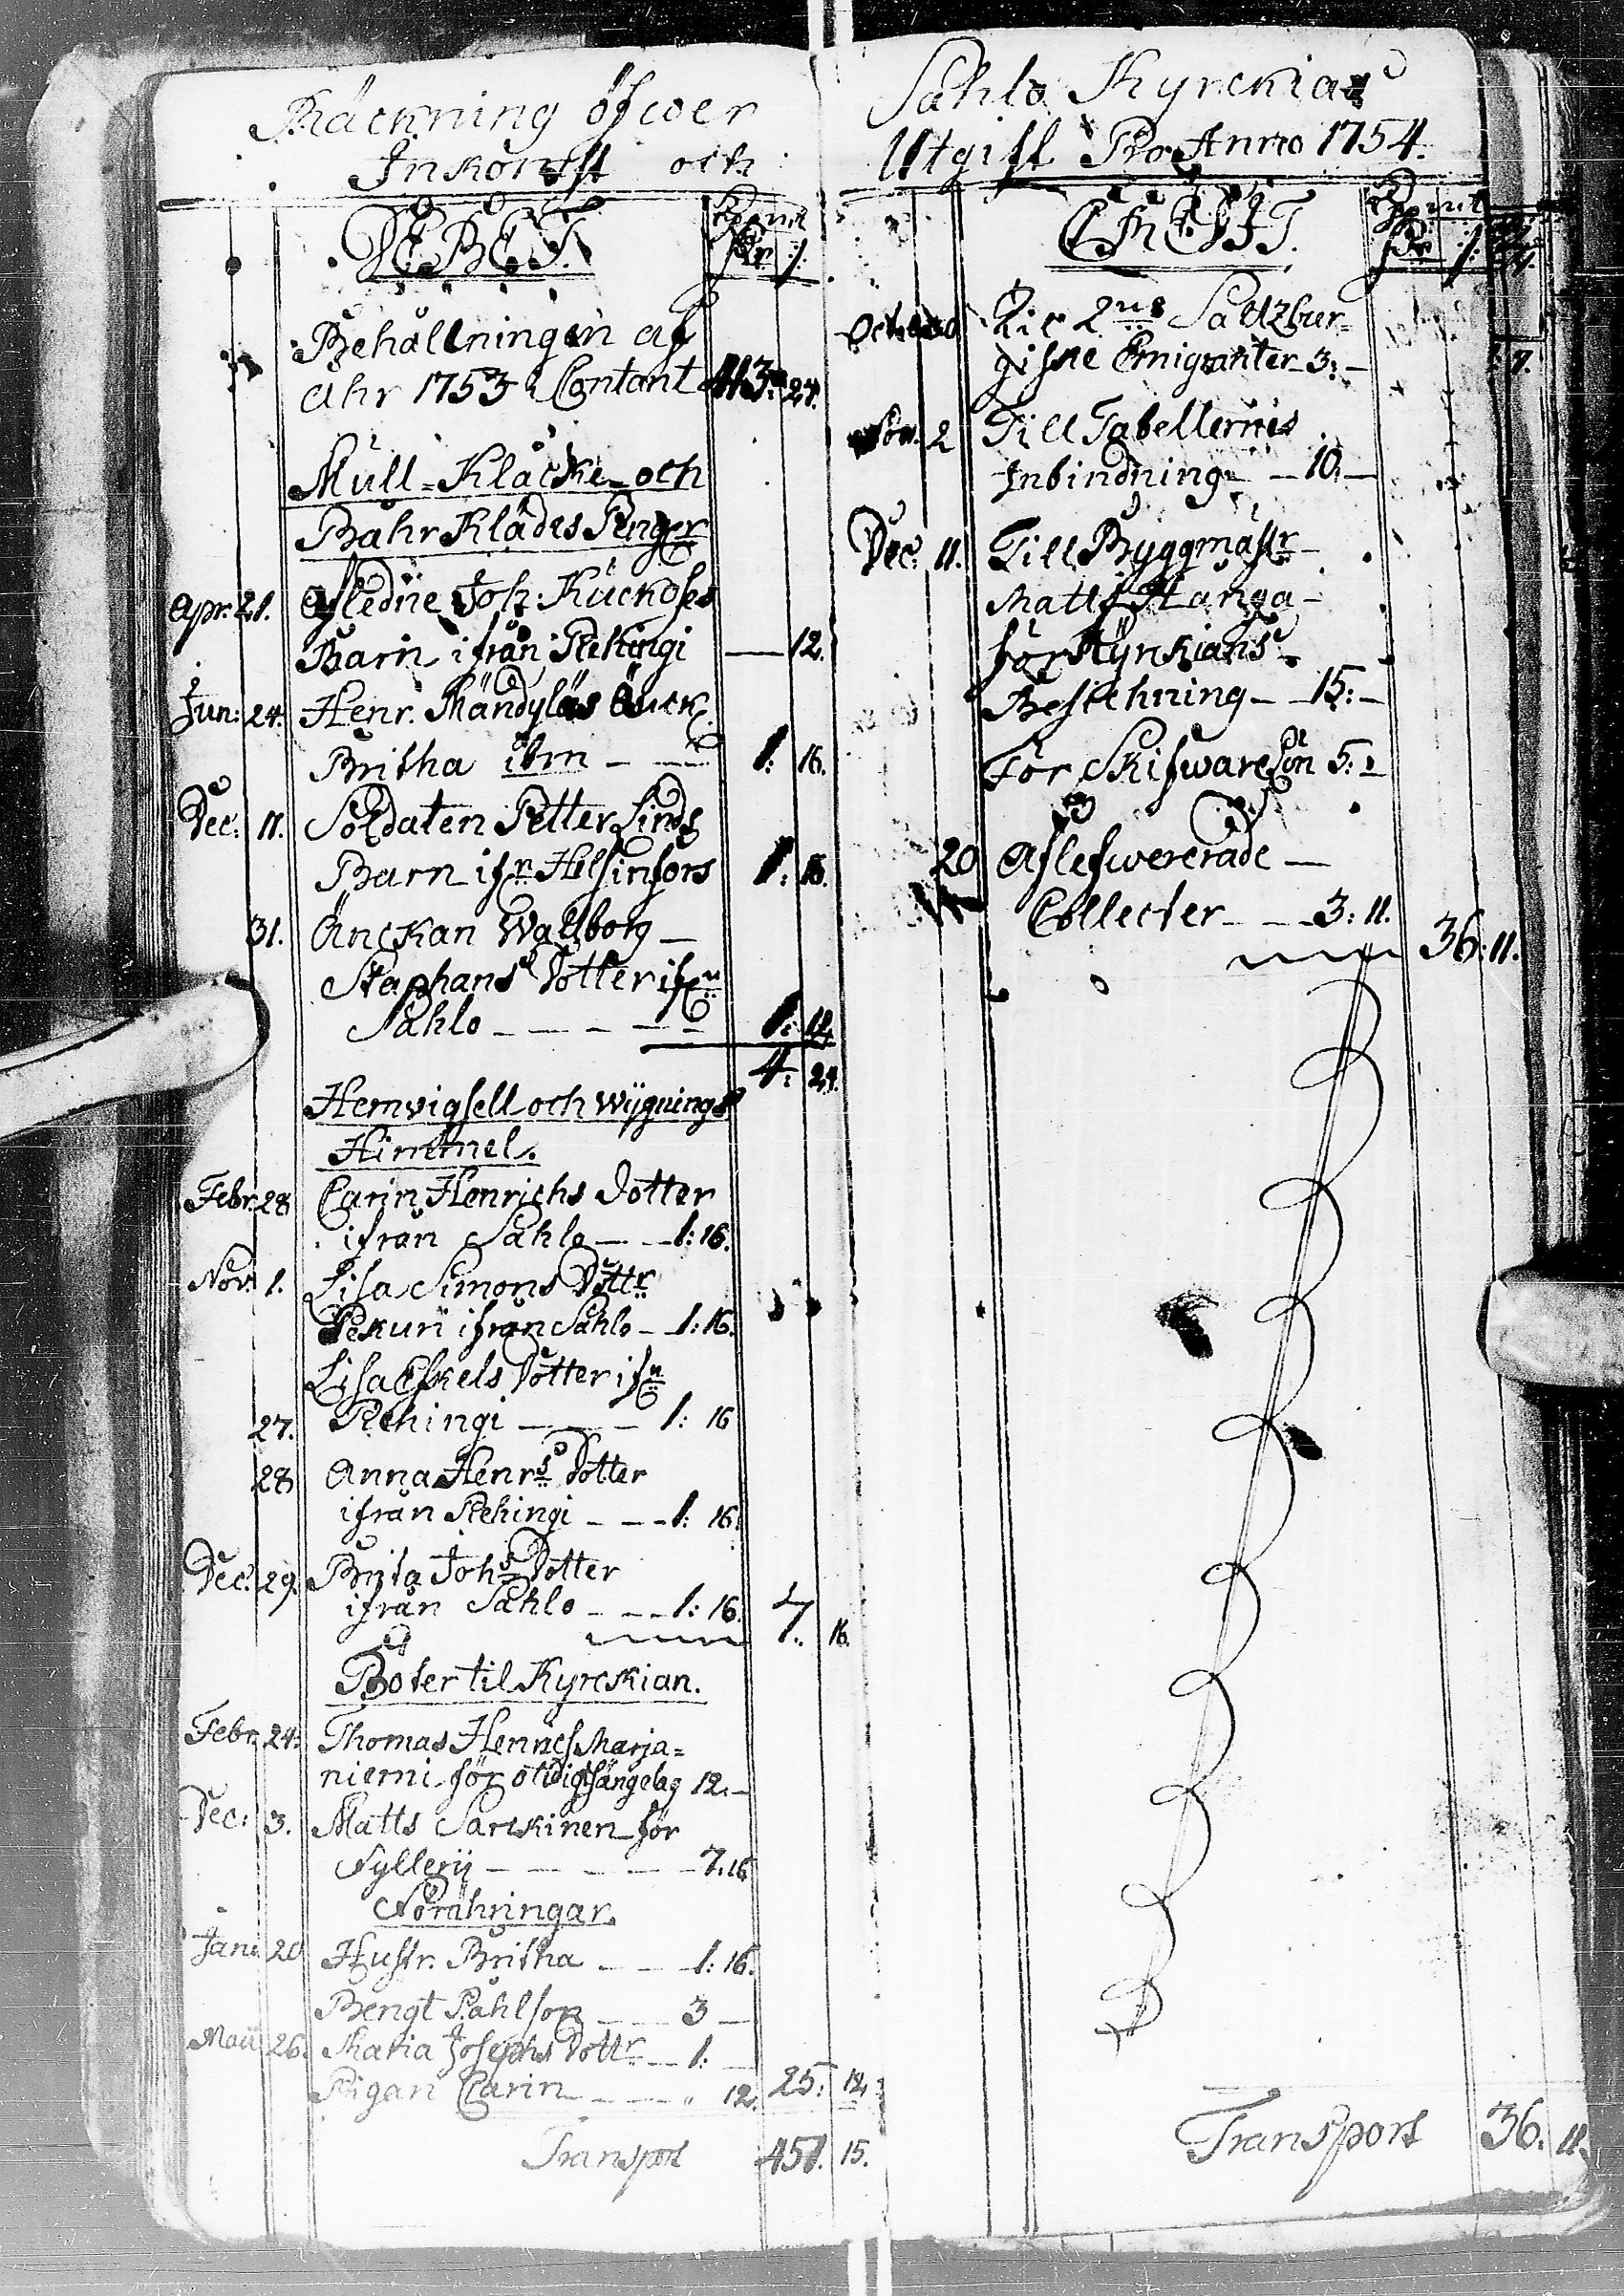 Räckning öfwer
Inkomst och
DEBET.
Behållningen af
åhr 1753 Contant 413: 24.
Mull-Klåcke och
Bahr Klädes Penger
Apr. 21. Afledne Joh: Kuckoses
Barn ifrån Rekingi — 12.
Jun: 24. Henr. Mändyläs Enck.
Britha ibm — 1: 16.
Dec: 11. Soldaten Petter Linds
Barn ifrn Helsinfors 1: 16.
31. Änckan Wallborg —
Staphans Dotter ifrn
Sahlo — — — 1: 12.
4: 24.
Hemvigsell och wijgnings
Himmel.
Febr. 28 Carin Henrichs Dotter
ifrån Sahlo — 1: 16.
Nov: 1. Lisa Simons Dottr
Pekuri ifrån Sahlo — 1: 16.
Lisa Eskels Dotter ifrn
27. Rekingi — — 1: 16
28 Anna Henrs Dotter
ifrån Rekingi — — 1: 16.
Dec: 29. Brita Johs Dotter
ifrån Sahlo — — 1: 16. 7: 16.
Böter til Kyrckian.
Febr. 24: Thomas Hennes Marja=
niemi för otidigt sängelag 12. —
Dec: 3. Matts Sarckinen för
Fyllerij — — — 7. 16
Förähringar.
Jan: 20 Hustr. Britha — — 1: 16.
Bengt Påhlson — — 3 —
Maii 26. Maria Josephs Dottr — 1: —
Pigan Carin — — " 12. 25: 12.
Transport 451. 15.
Sahlo Kyrckias
Utgift Pro Anno 1754.
CREDIT.
Octob: 20 Till 2ne Saltzbur=
giske Emigranter 3: —
Nov. 2 Till Tabellernes
Inbindning — 10. —
Dec: 11. Till Byggmästr —
Matts Hanga —
för Kyrkians
Besichning — 15: —
För Skifwaresön 5: —
20 Aflefwererade —
Collecter — — 3: 11.
36: 11.
Transport 36. 11.